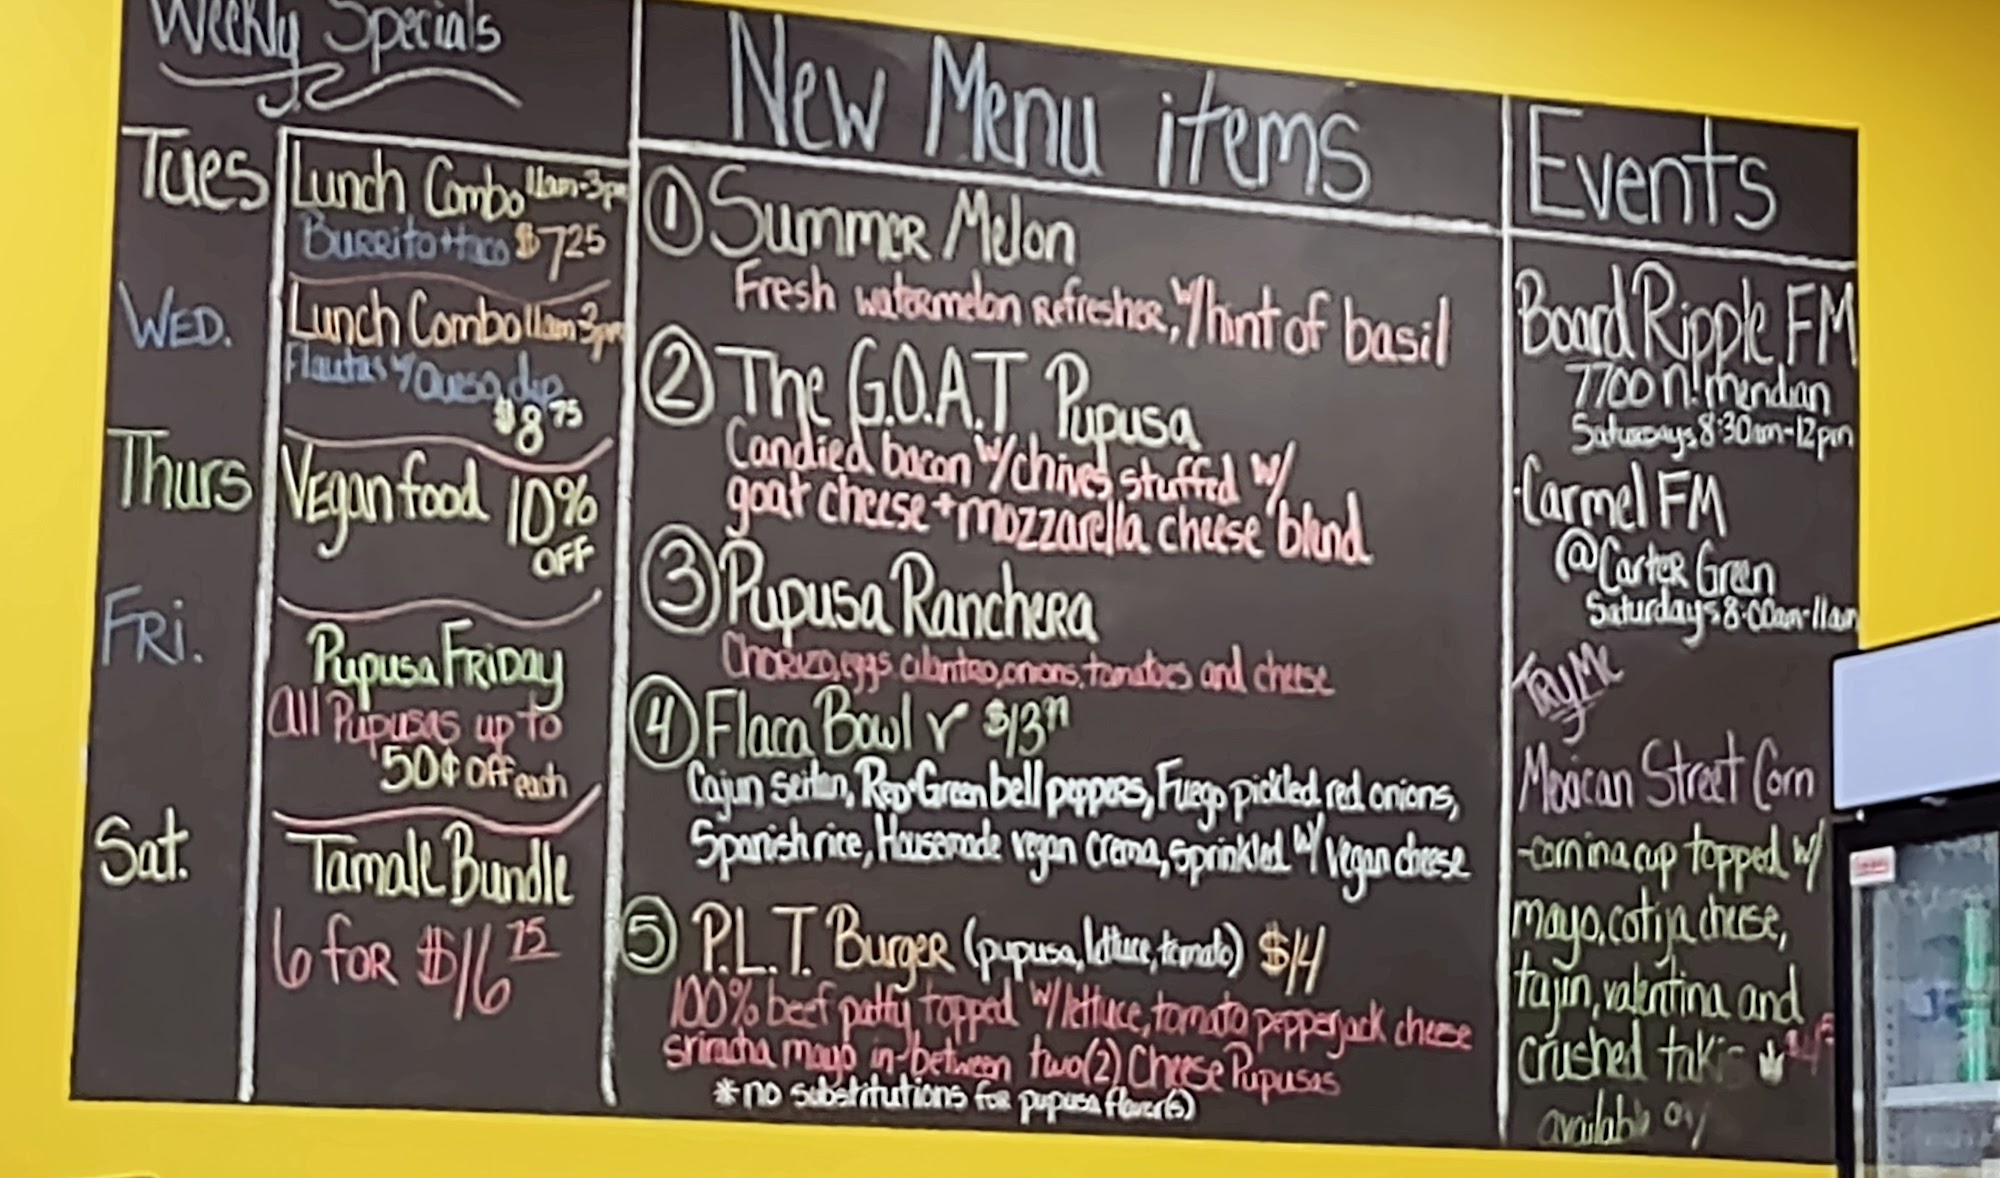 Weekly Specials
Tues
Lunch Combo 11am-3pm
Burrito + taco $7.25
Wed.
Lunch Combo 11am-3pm
Flautas w/ Queso dip
$8.75
Thurs
Vegan food 10%
off
Fri.
Pupusa Friday
All Pupusas up to
50¢ off each
Sat.
Tamale Bundle
6 for $16.75
New Menu items
① Summer Melon
Fresh watermelon refresher, w/hint of basil
② The G.O.A.T Pupusa
Candied bacon w/chives, stuffed w/
goat cheese + mozzarella cheese blend
③ Pupusa Ranchera
Chorizo, eggs cilantro, onions, tomatoes and cheese
④ Flaca Bowl v $13
Cajun seitan, Red+Green bell peppers, Fuego pickled red onions,
Spanish rice, Housemade vegan crema, sprinkled w/ vegan cheese
⑤ P.L.T. Burger (pupusa, lettuce, tomato) $14
100% beef patty topped w/lettuce, tomato pepperjack cheese
sriracha mayo in-between two(2) Cheese Pupusas
*no substitutions for pupusa flavor(s)
Events
Board Ripple FM
7700 n. meridian
Saturdays 8:30am-12pm
·Carmel FM
@Carter Green
Saturdays 8:00am-11am
Try Me
Mexican Street Corn
-corn in a cup topped w/
mayo, cotija cheese,
tajin, valentina and
crushed takis
available